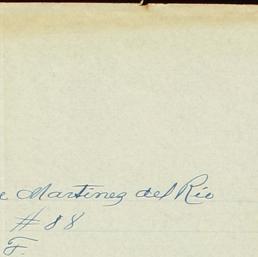 e Martinez del Rio
# 88
F.